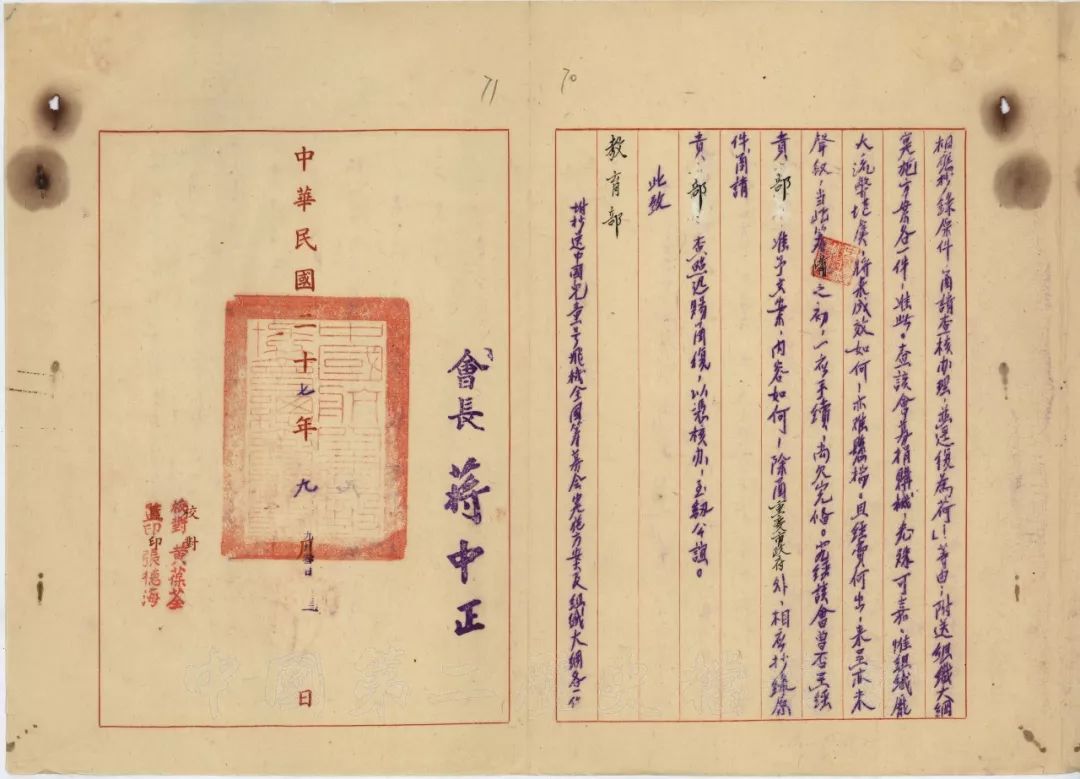 70
相應抄錄原件，函請查核办理，並迅復為荷！」等由；附送組織大綱
實施方案各一件，准此。查該會募捐購機，允殊可嘉，惟組織龐
大，流弊堪虞，將來成效如何，亦难懸揣。且經費何出，未呈亦未
聲叙，当此籌備之初，一应手續，尚欠完俻。究經該會曾否呈經
貴部准予立案，内容如何，除函重慶市政府外，相應抄錄原
件，函請
貴部查照迅賜函復，以憑核办，至紉公誼。
此致
教育部
附抄送中國兒童号飛機全國籌募会实施方案及組織大綱各一份
71
會長 蔣中正
中華民國二十七年九月 日
校對 黃葆荃
蓋印 張德海
中國第二歷史檔案館